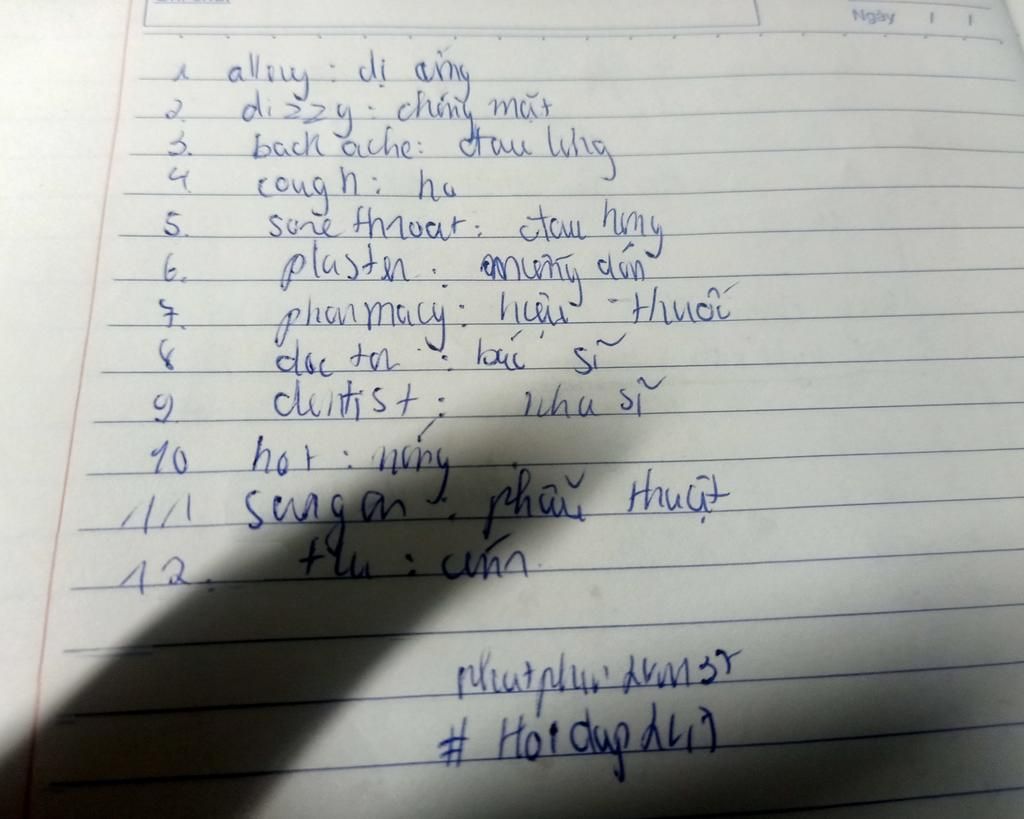 Ngày / /
1 allergy: dị ứng
2. dizzy: chóng mặt
3. back ache: đau lưng
4 cough: ho
5. sore throat: đau họng
6. plaster: miếng dán
7. pharmacy: hiệu thuốc
8 doctor: bác sĩ
9 dentist: nha sĩ
10 hot: nóng
11 surgeon: phẫu thuật
12. flu: cúm
# Hoidap